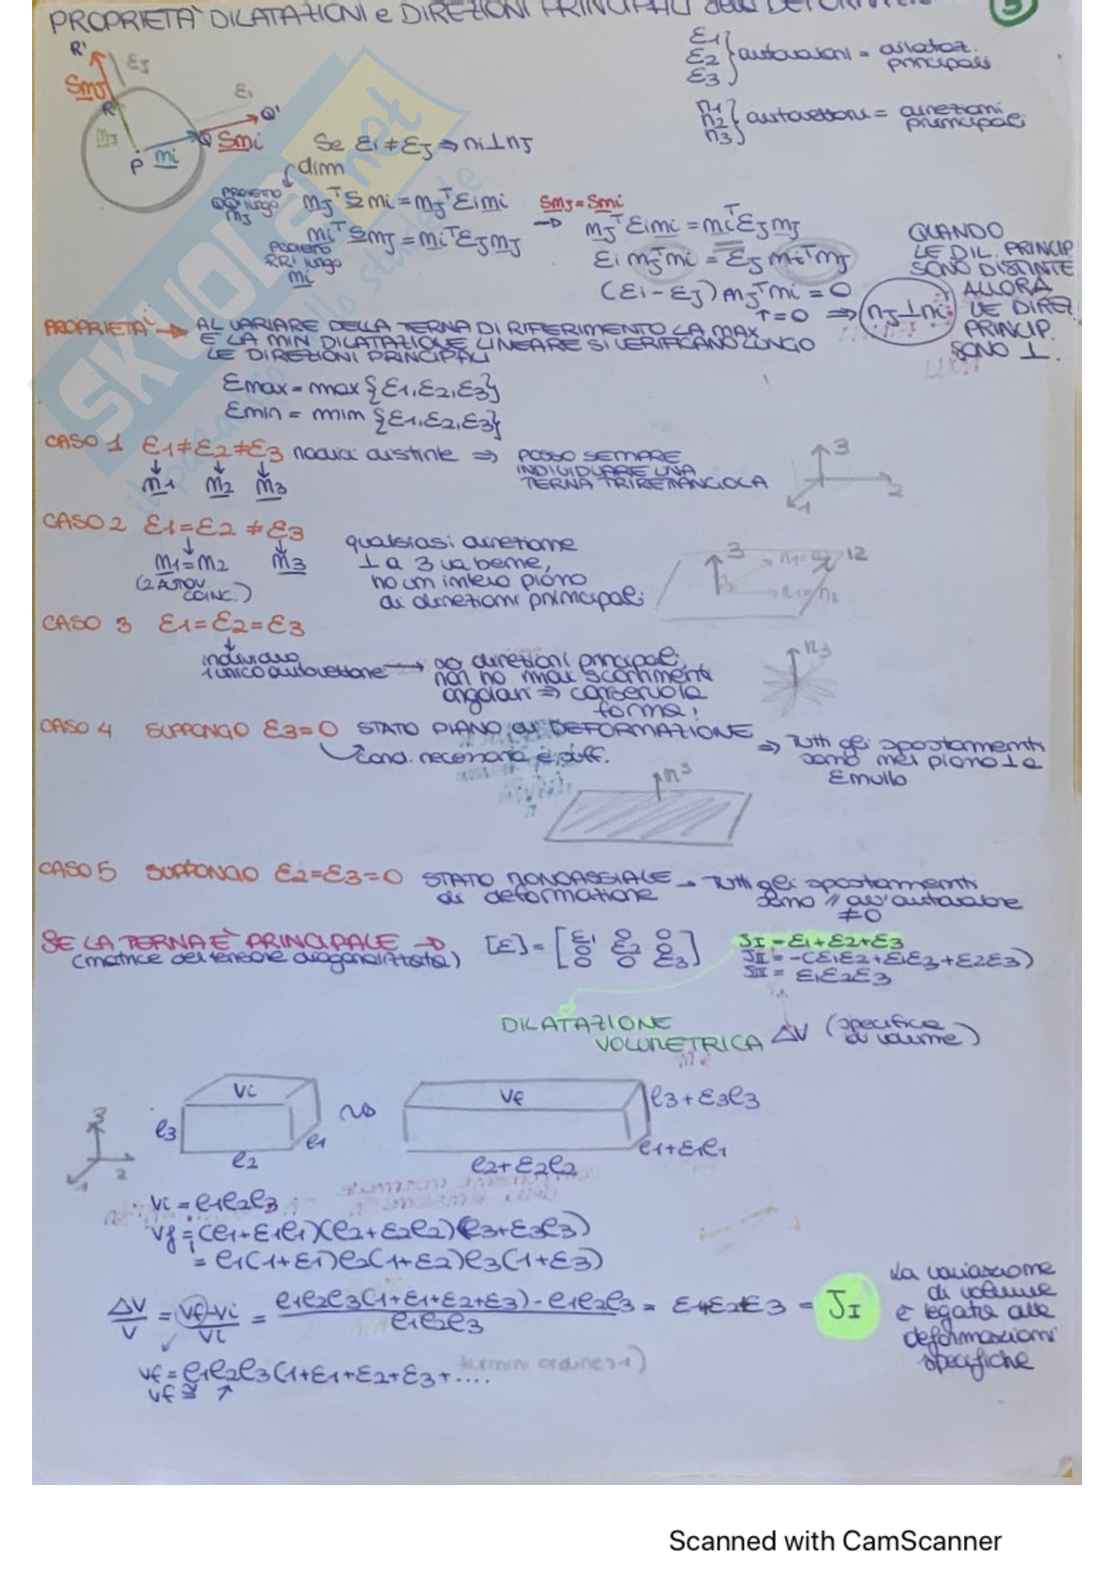 PROPRIETÀ DILATAZIONI e DIREZIONI PRINCIPALI della DEFORMAZIONE
3
R'
εJ
SmJ
R
mJ
P
mi
Q
Smi
Q'
εi
ε1
ε2 autovalori = dilataz. principali
ε3
n1
n2 autovettori = direzioni principali
n3
Se εi ≠ εJ ⇒ ni⊥nJ
dim
PROIETTO QQ' lungo mJ
mJᵀ Σ mi = mJᵀ εi mi
SmJ = Smi
mJᵀ εi mi = miᵀ εJ mJ
miᵀ Σ mJ = miᵀ εJ mJ
PROIETTO RR' lungo mi
εi mJᵀ mi = εJ miᵀ mJ
(εi - εJ) mJᵀ mi = 0
↑=0 ⇒ nJ⊥ni
QUANDO
LE DIL. PRINCIP
SONO DISTINTE
ALLORA
LE DIREZ.
PRINCIP.
SONO ⊥.
PROPRIETÀ → AL VARIARE DELLA TERNA DI RIFERIMENTO LA MAX
E LA MIN DILATAZIONE LINEARE SI VERIFICANO LUNGO
LE DIREZIONI PRINCIPALI
εmax = max {ε1, ε2, ε3}
εmin = min {ε1, ε2, ε3}
CASO 1 ε1≠ε2≠ε3 radici distinte ⇒ POSSO SEMPRE
INDIVIDUARE UNA
TERNA TRIRETTANGOLA
m1 m2 m3
3
2
1
CASO 2 ε1=ε2≠ε3
m1=m2 m3
(2 AUTOV COINC.)
qualsiasi direzione
⊥ a 3 va bene,
ho un intero piano
di direzioni principali
3
12
CASO 3 ε1=ε2=ε3
individuo
1 unico autovettore → ∞ direzioni principali,
non ho mai scorrimenti
angolari ⇒ conservo la
forma!
n3
CASO 4 SUPPONGO ε3=0 STATO PIANO di DEFORMAZIONE ⇒ Tutti gli spostamenti
sono nel piano ⊥ a
ε nullo
cond. necessaria e suff.
n3
CASO 5 SUPPONGO ε2=ε3=0 STATO MONOASSIALE → Tutti gli spostamenti
di deformazione
sono // all'autovalore
≠0
SE LA TERNA È PRINCIPALE →
(matrice del tensore diagonalizzata)
[ε] = [ε1 0 0
0 ε2 0
0 0 ε3]
JI = ε1+ε2+ε3
JII = -(ε1ε2+ε1ε3+ε2ε3)
JIII = ε1ε2ε3
DILATAZIONE
VOLUMETRICA ΔV (specifica di volume)
Vi
l3
l2
l1
Vf
l3+ε3l3
l1+ε1l1
l2+ε2l2
3
2
1
Vi = l1l2l3
Vf = (l1+ε1l1)(l2+ε2l2)(l3+ε3l3)
= l1(1+ε1)l2(1+ε2)l3(1+ε3)
ΔV/V = Vf-Vi/Vi = l1l2l3(1+ε1+ε2+ε3)-l1l2l3/l1l2l3 = ε1+ε2+ε3 = JI
La variazione
di volume
è legata alle
deformazioni
specifiche
Vf = l1l2l3(1+ε1+ε2+ε3+....
Vf ≅ ↑
SKUOLA.net
Scanned with CamScanner